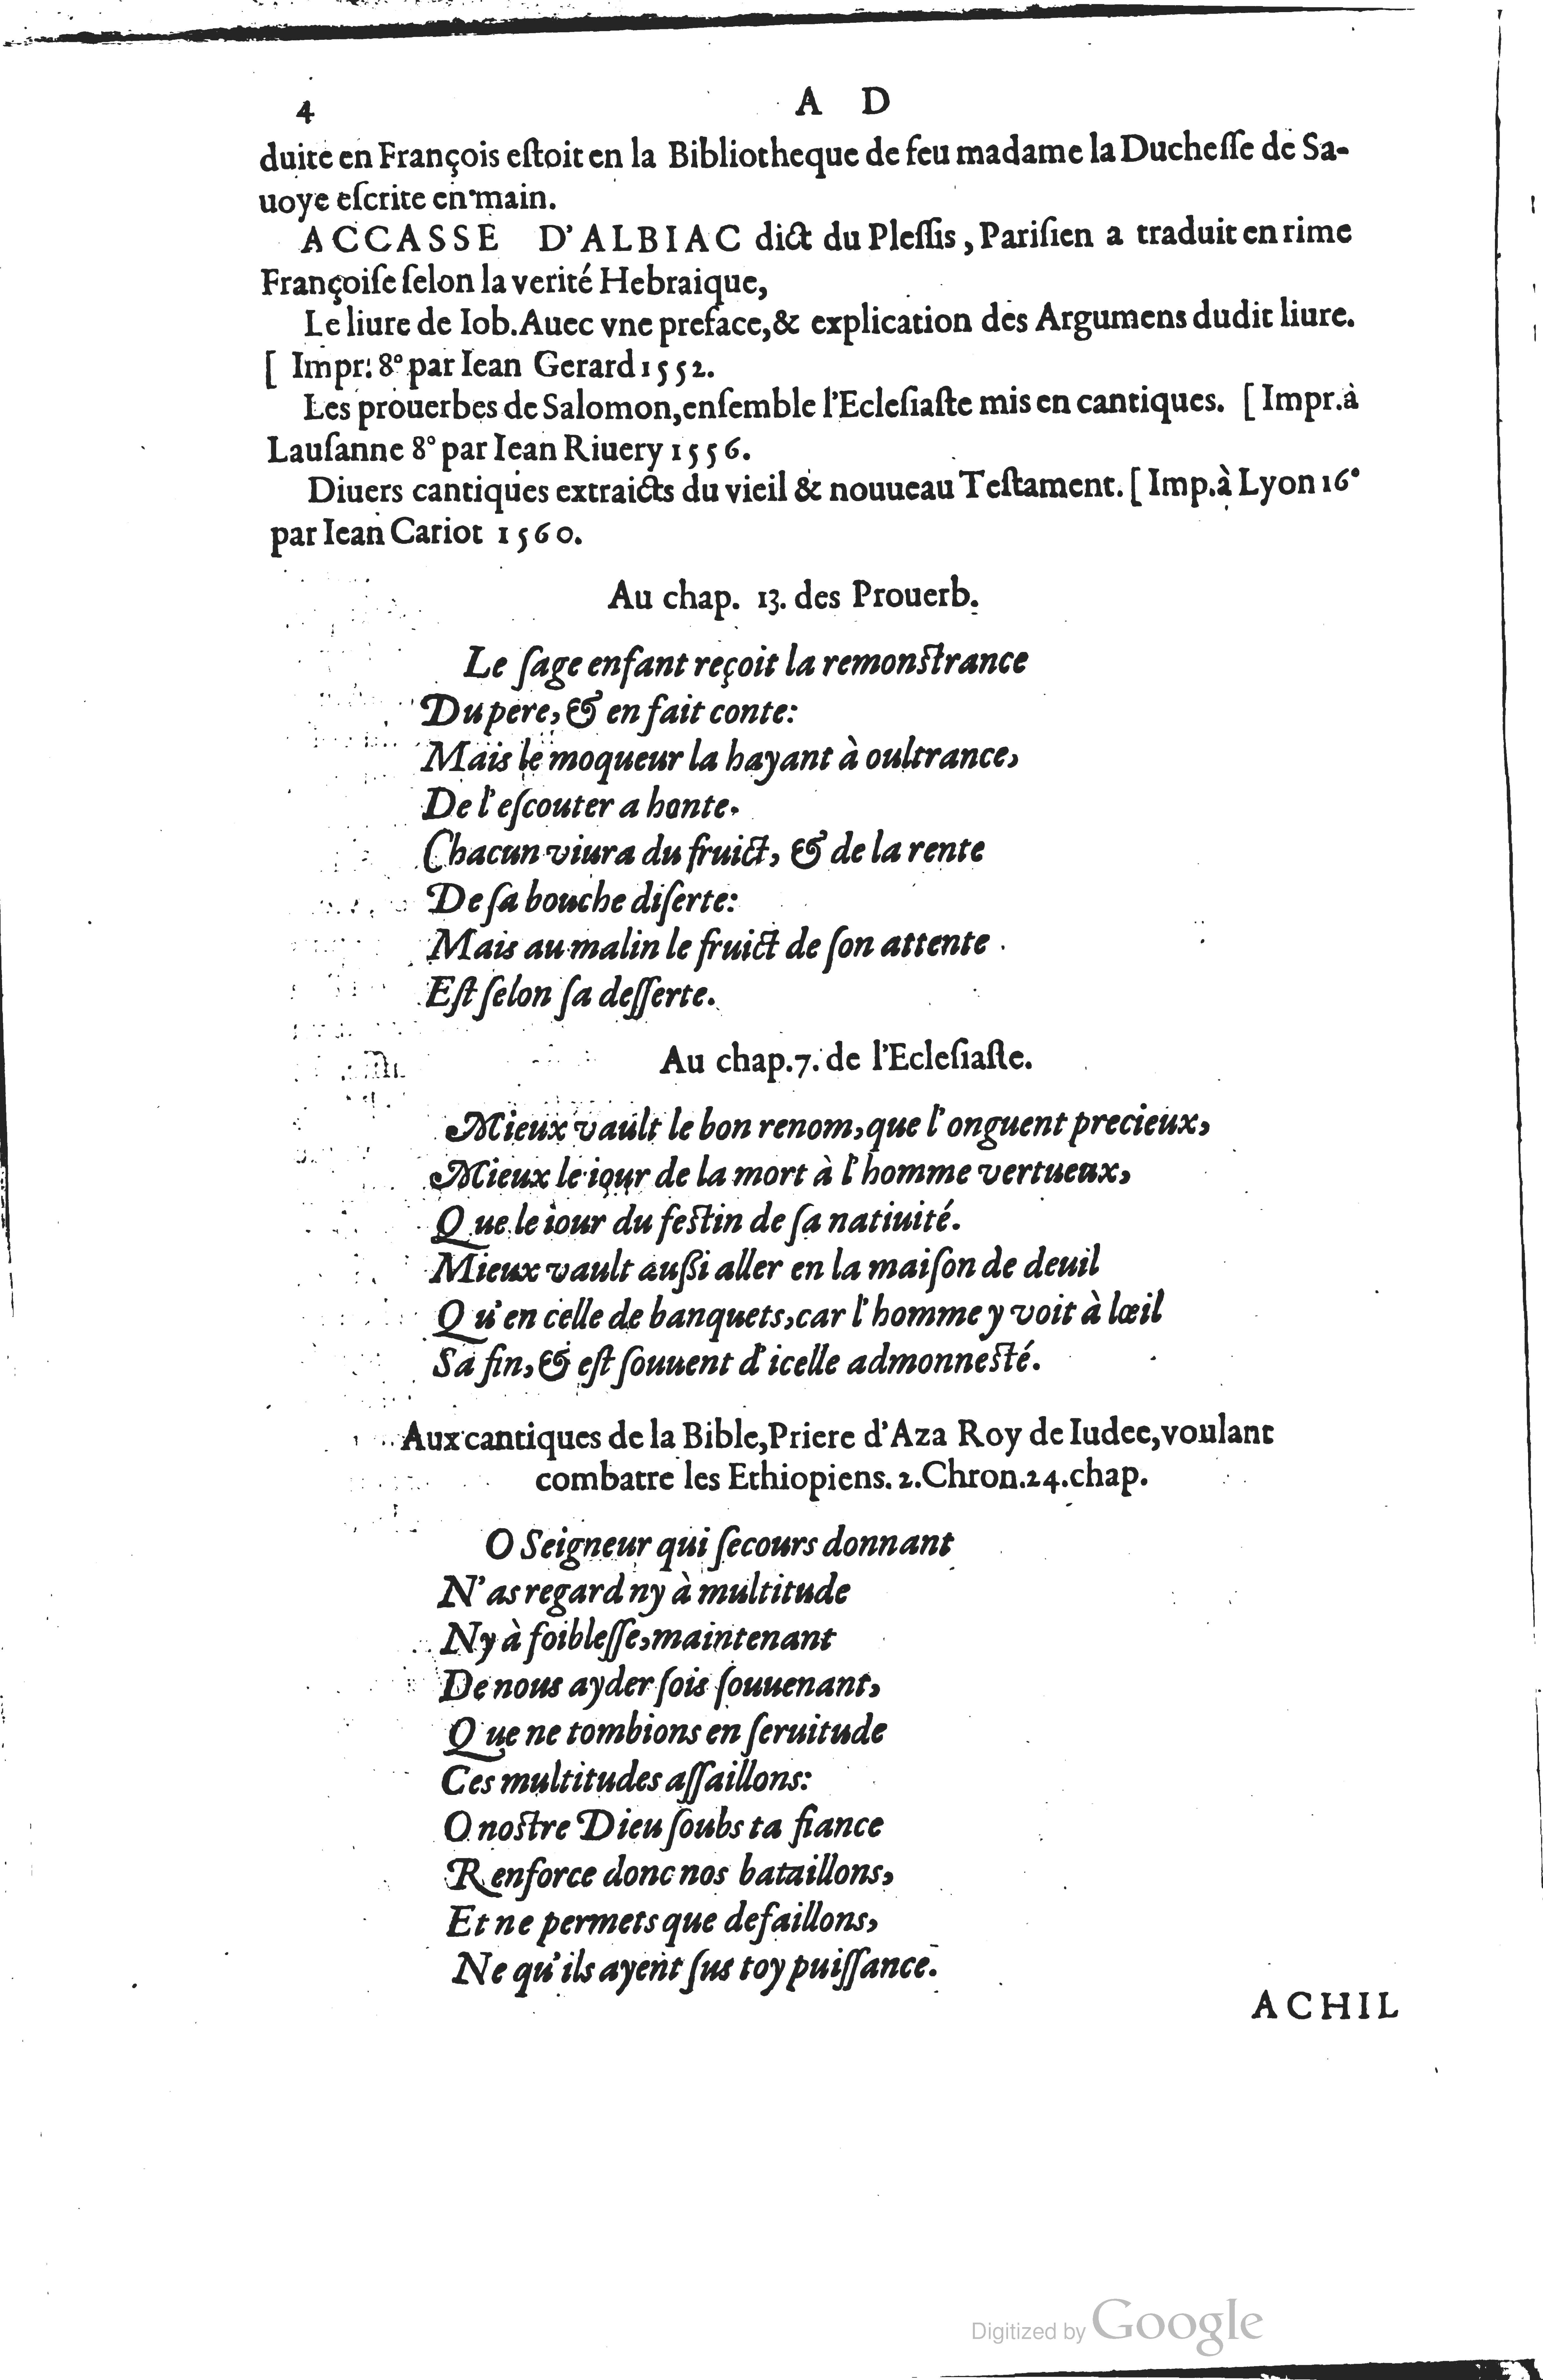 4 A D
duite en François eſtoit en la Bibliotheque de feu madame la Ducheſſe de Sa-
uoye eſcrite en main.
ACCASSE D'ALBIAC dict du Pleſſis, Pariſien a traduit en rime
Françoiſe ſelon la verité Hebraique,
Le liure de Iob. Auec vne preface, & explication des Argumens dudit liure.
[ Impr. 8° par Iean Gerard 1552.
Les prouerbes de Salomon, enſemble l'Ecleſiaſte mis en cantiques. [ Impr. à
Lauſanne 8° par Iean Riuery 1556.
Diuers cantiques extraicts du vieil & nouueau Teſtament. [ Imp. à Lyon 16°
par Iean Cariot 1560.
Au chap. 13. des Prouerb.
Le ſage enfant reçoit la remonſtrance
Du pere, & en fait conte:
Mais le moqueur la hayant à oultrance,
De l'eſcouter a honte.
Chacun viura du fruict, & de la rente
De ſa bouche diſerte:
Mais au malin le fruict de ſon attente
Eſt ſelon ſa deſſerte.
Au chap. 7. de l'Ecleſiaſte.
Mieux vault le bon renom, que l'onguent precieux,
Mieux le iour de la mort à l'homme vertueux,
Que le iour du feſtin de ſa natiuité.
Mieux vault auſſi aller en la maiſon de deuil
Qu'en celle de banquets, car l'homme y voit à lœil
Sa fin, & eſt ſouuent d'icelle admonneſté.
Aux cantiques de la Bible, Priere d'Aza Roy de Iudee, voulant
combatre les Ethiopiens. 2. Chron. 24. chap.
O Seigneur qui ſecours donnant
N'as regard ny à multitude
Ny à foibleſſe, maintenant
De nous ayder ſois ſouuenant,
Que ne tombions en ſeruitude
Ces multitudes aſſaillons:
O noſtre Dieu ſoubs ta fiance
Renforce donc nos bataillons,
Et ne permets que defaillons,
Ne qu'ils ayent ſus toy puiſſance.
ACHIL
Digitized by Google